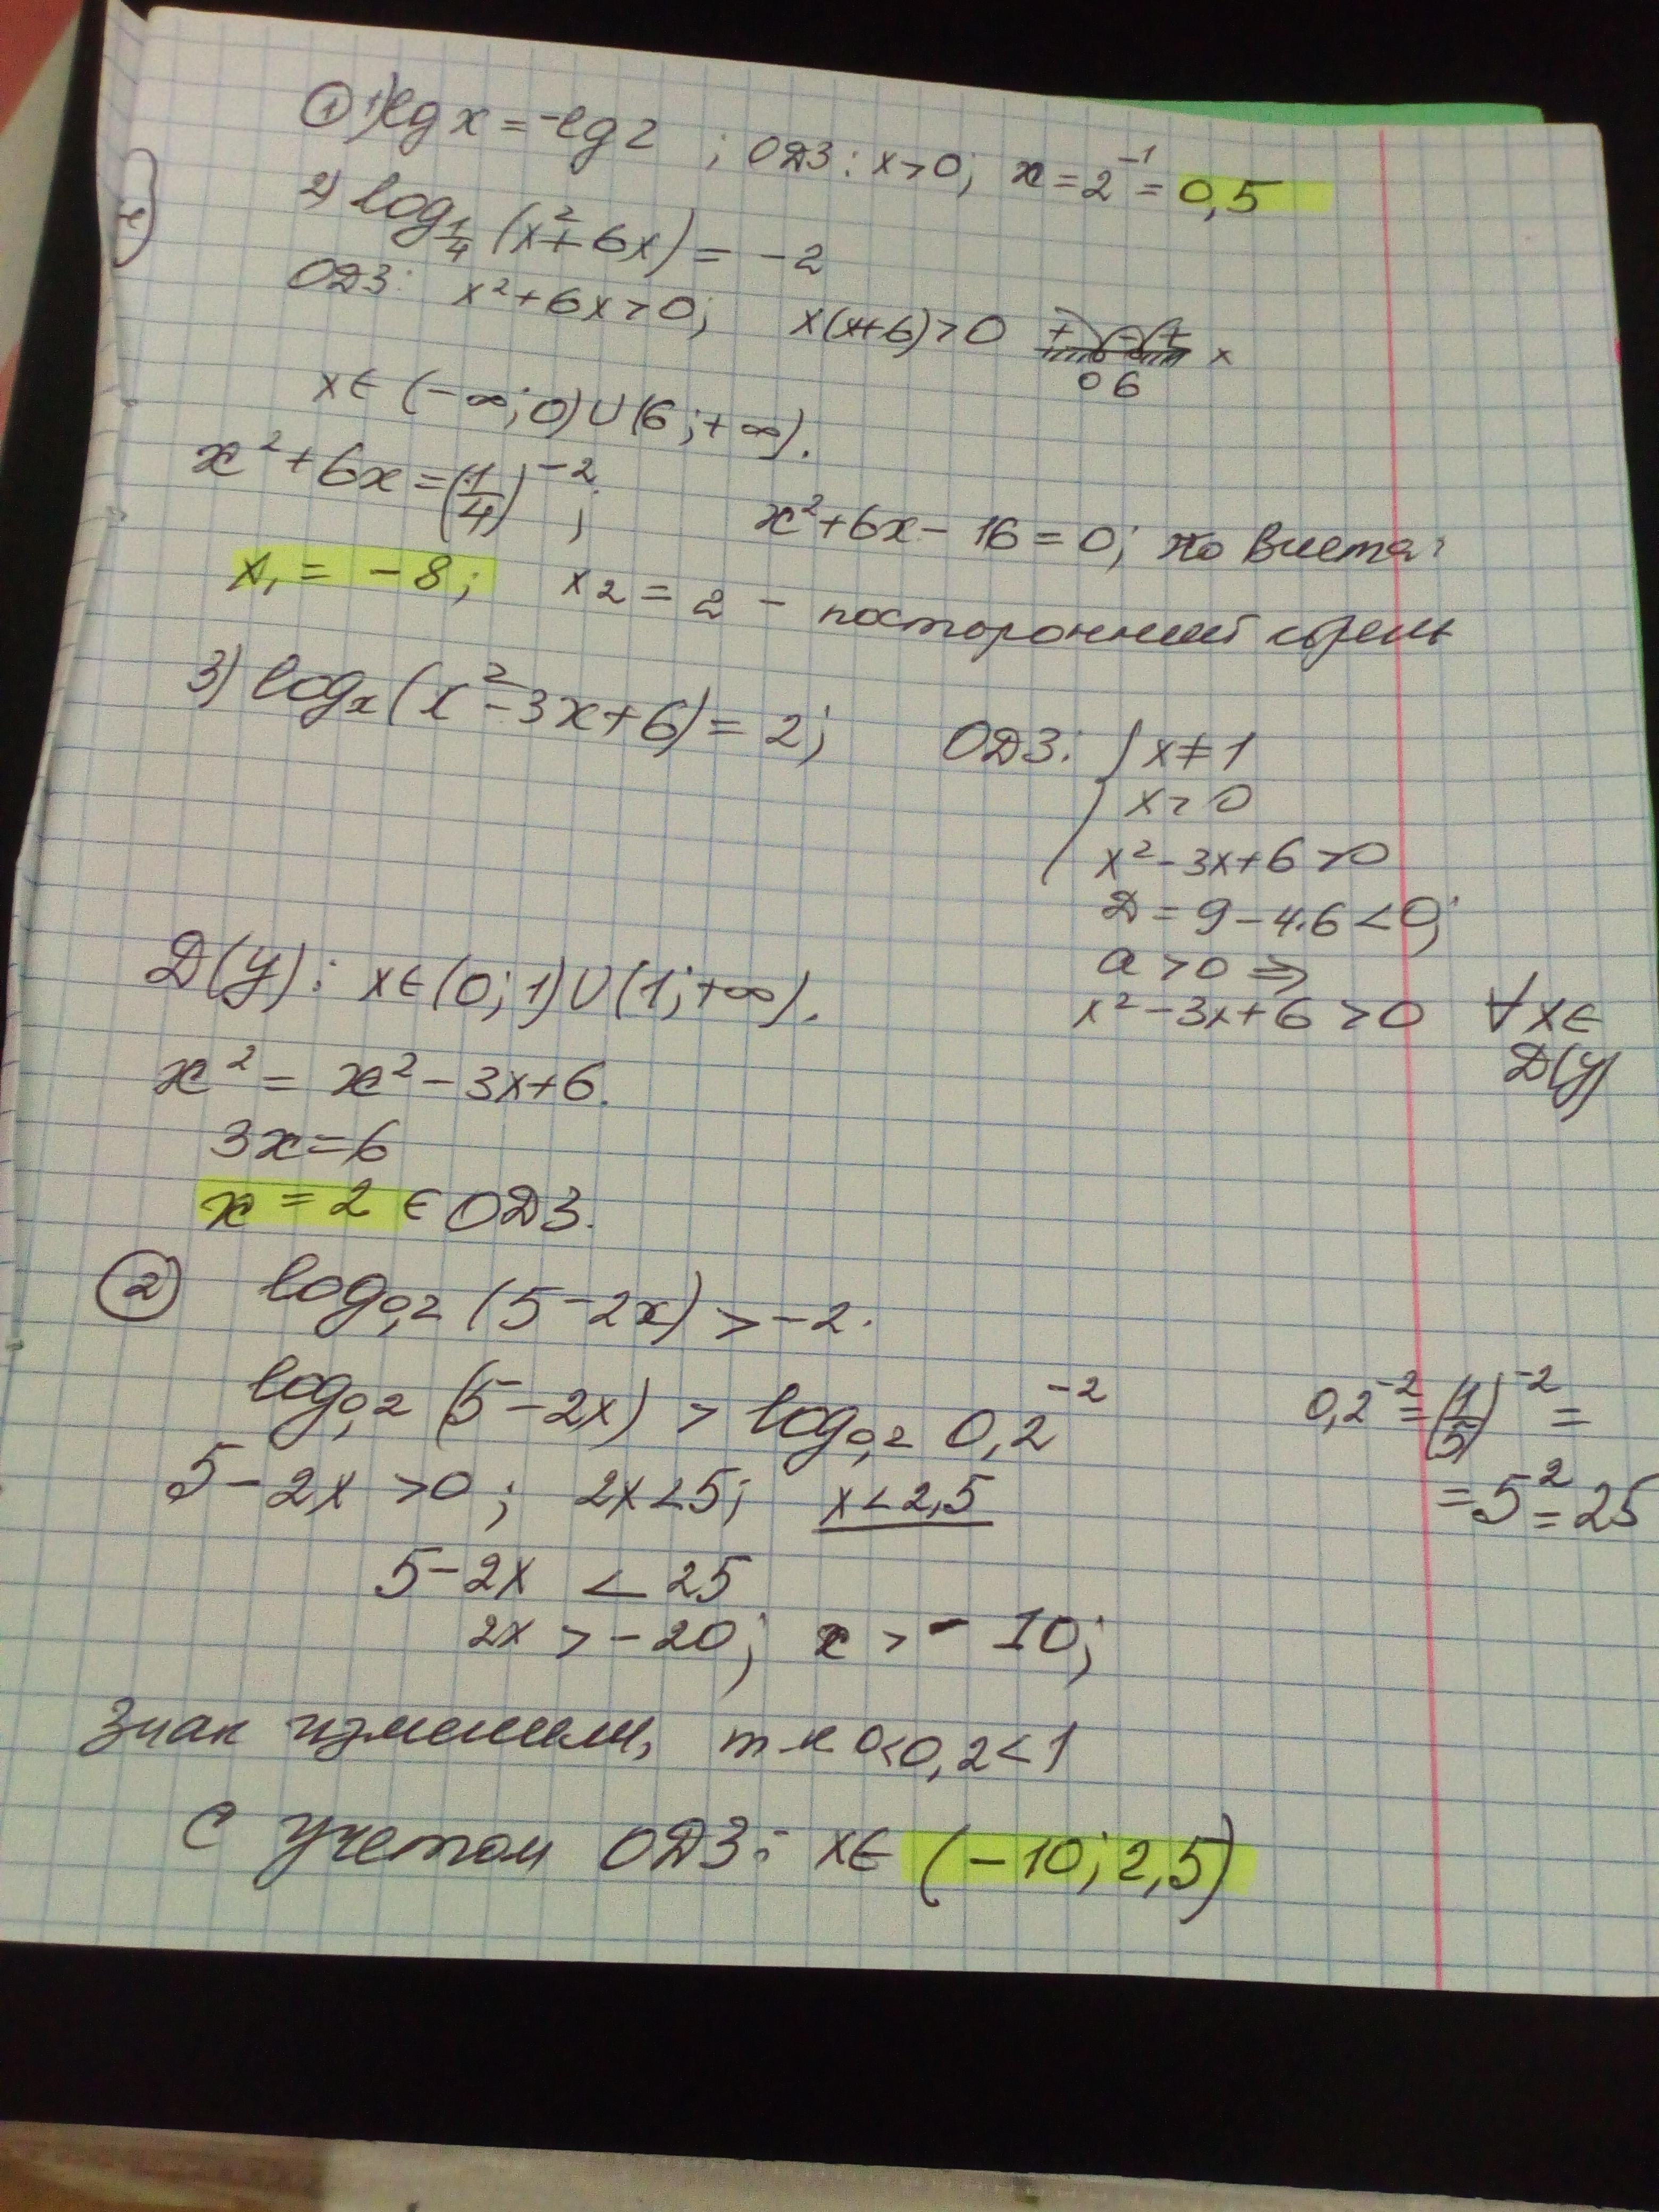 ① 1) lg x = -lg 2 ; ОДЗ: x>0; x = 2⁻¹ = 0,5
2) log_{1/4} (x²+6x) = -2
ОДЗ: x²+6x>0; x(x+6)>0 + - + x
0 6
x∈ (-∞;0)∪(6;+∞).
x²+6x = (1/4)⁻²; x²+6x-16=0; по Виета:
x₁ = -8; x₂ = 2 - посторонний корень
3) logₓ(x²-3x+6) = 2; ОДЗ: { x≠1
x>0
x²-3x+6>0
D = 9-4·6<0;
a>0 ⇒
x²-3x+6>0 ∀x∈
D(y)
D(y): x∈(0;1)∪(1;+∞).
x² = x²-3x+6.
3x=6
x = 2 ∈ ОДЗ.
② log_{0,2} (5-2x) > -2.
log_{0,2} (5-2x) > log_{0,2} 0,2⁻² 0,2⁻² = (1/5)⁻² =
= 5² = 25
5-2x >0; 2x<5; x<2,5
5-2x < 25
2x > -20; x > -10;
Знак изменили, т к 0<0,2<1
С учетом ОДЗ: x∈ (-10; 2,5)